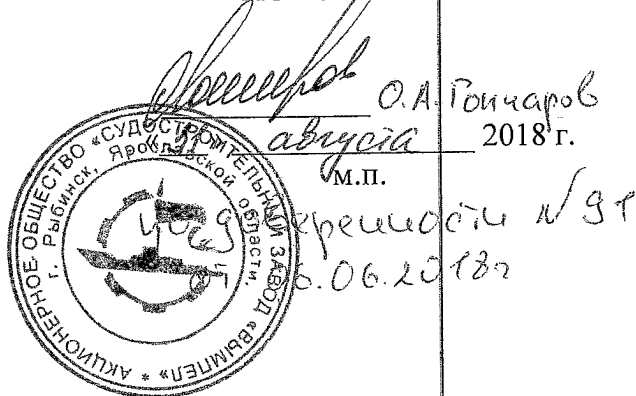 О.А. Гончаров
«31» августа 2018 г.
м.п.
по доверенности № 91
06.2018г
АКЦИОНЕРНОЕ ОБЩЕСТВО «СУДОСТРОИТЕЛЬНЫЙ ЗАВОД «ВЫМПЕЛ» *
г. Рыбинск, Ярославской области,